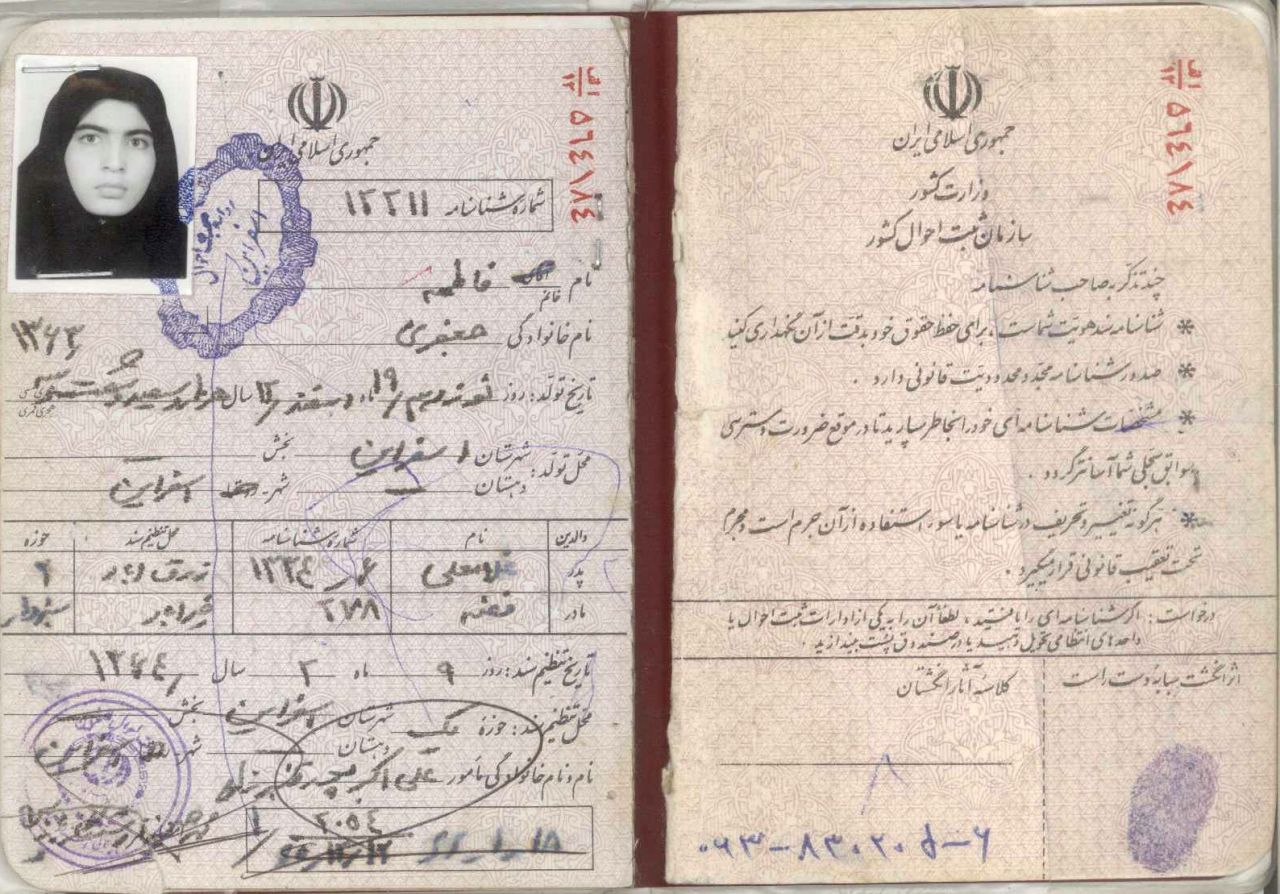 جمهوری اسلامی ایران
وزارت کشور
سازمان ثبت احوال کشور
چند تذکر به صاحب شناسنامه
* شناسنامه سند هویت شماست، برای حفظ حقوق خود بدقت از آن نگهداری کنید
* صدور شناسنامه مجدد محدودیت قانونی دارد.
* مشخصات شناسنامه ای خود را بخاطر بسپارید تا در موقع ضرورت دسترسی
بسوابق سجلی شما آسانتر گردد.
* هرگونه تغییر و تحریف در شناسنامه یا سوء استفاده از آن جرم است و مجرم
تحت تعقیب قانونی قرار میگیرد.
درخواست: اگر شناسنامه ای را یافتید، لطفاً آن را به یکی از ادارات ثبت احوال یا
واحدهای انتظامی تحویل دهید یا در صندوق پست بیندازید.
اثر انگشت سبابه دست راست
کلاسه آثار انگشتان
۵۶۴۱۸۴
الف ۱۳
جمهوری اسلامی ایران
شماره شناسنامه ۱۲۲۱۱
نام خانم فاطمه
نام خانوادگی جعفری
۱۳۶۳
تاریخ تولد: روز نوزدهم /۱۹ ماه اسفند /۱۲ سال هزار سیصد و شصت و سه
محل تولد: شهرستان اسفراین بخش
دهستان شهر اسفراین
والدین نام شماره شناسنامه محل تنظیم سند حوزه
پدر ۲
مادر فضه ۲۷۸ سبزوار
تاریخ تنظیم سند: روز ۹ ماه ۲ سال ۱۳۶۴
محل تنظیم سند: حوزه یک شهرستان اسفراین بخش
دهستان شهر اسفراین
نام و نام خانوادگی مأمور علی اکبر
۲۰۵۴